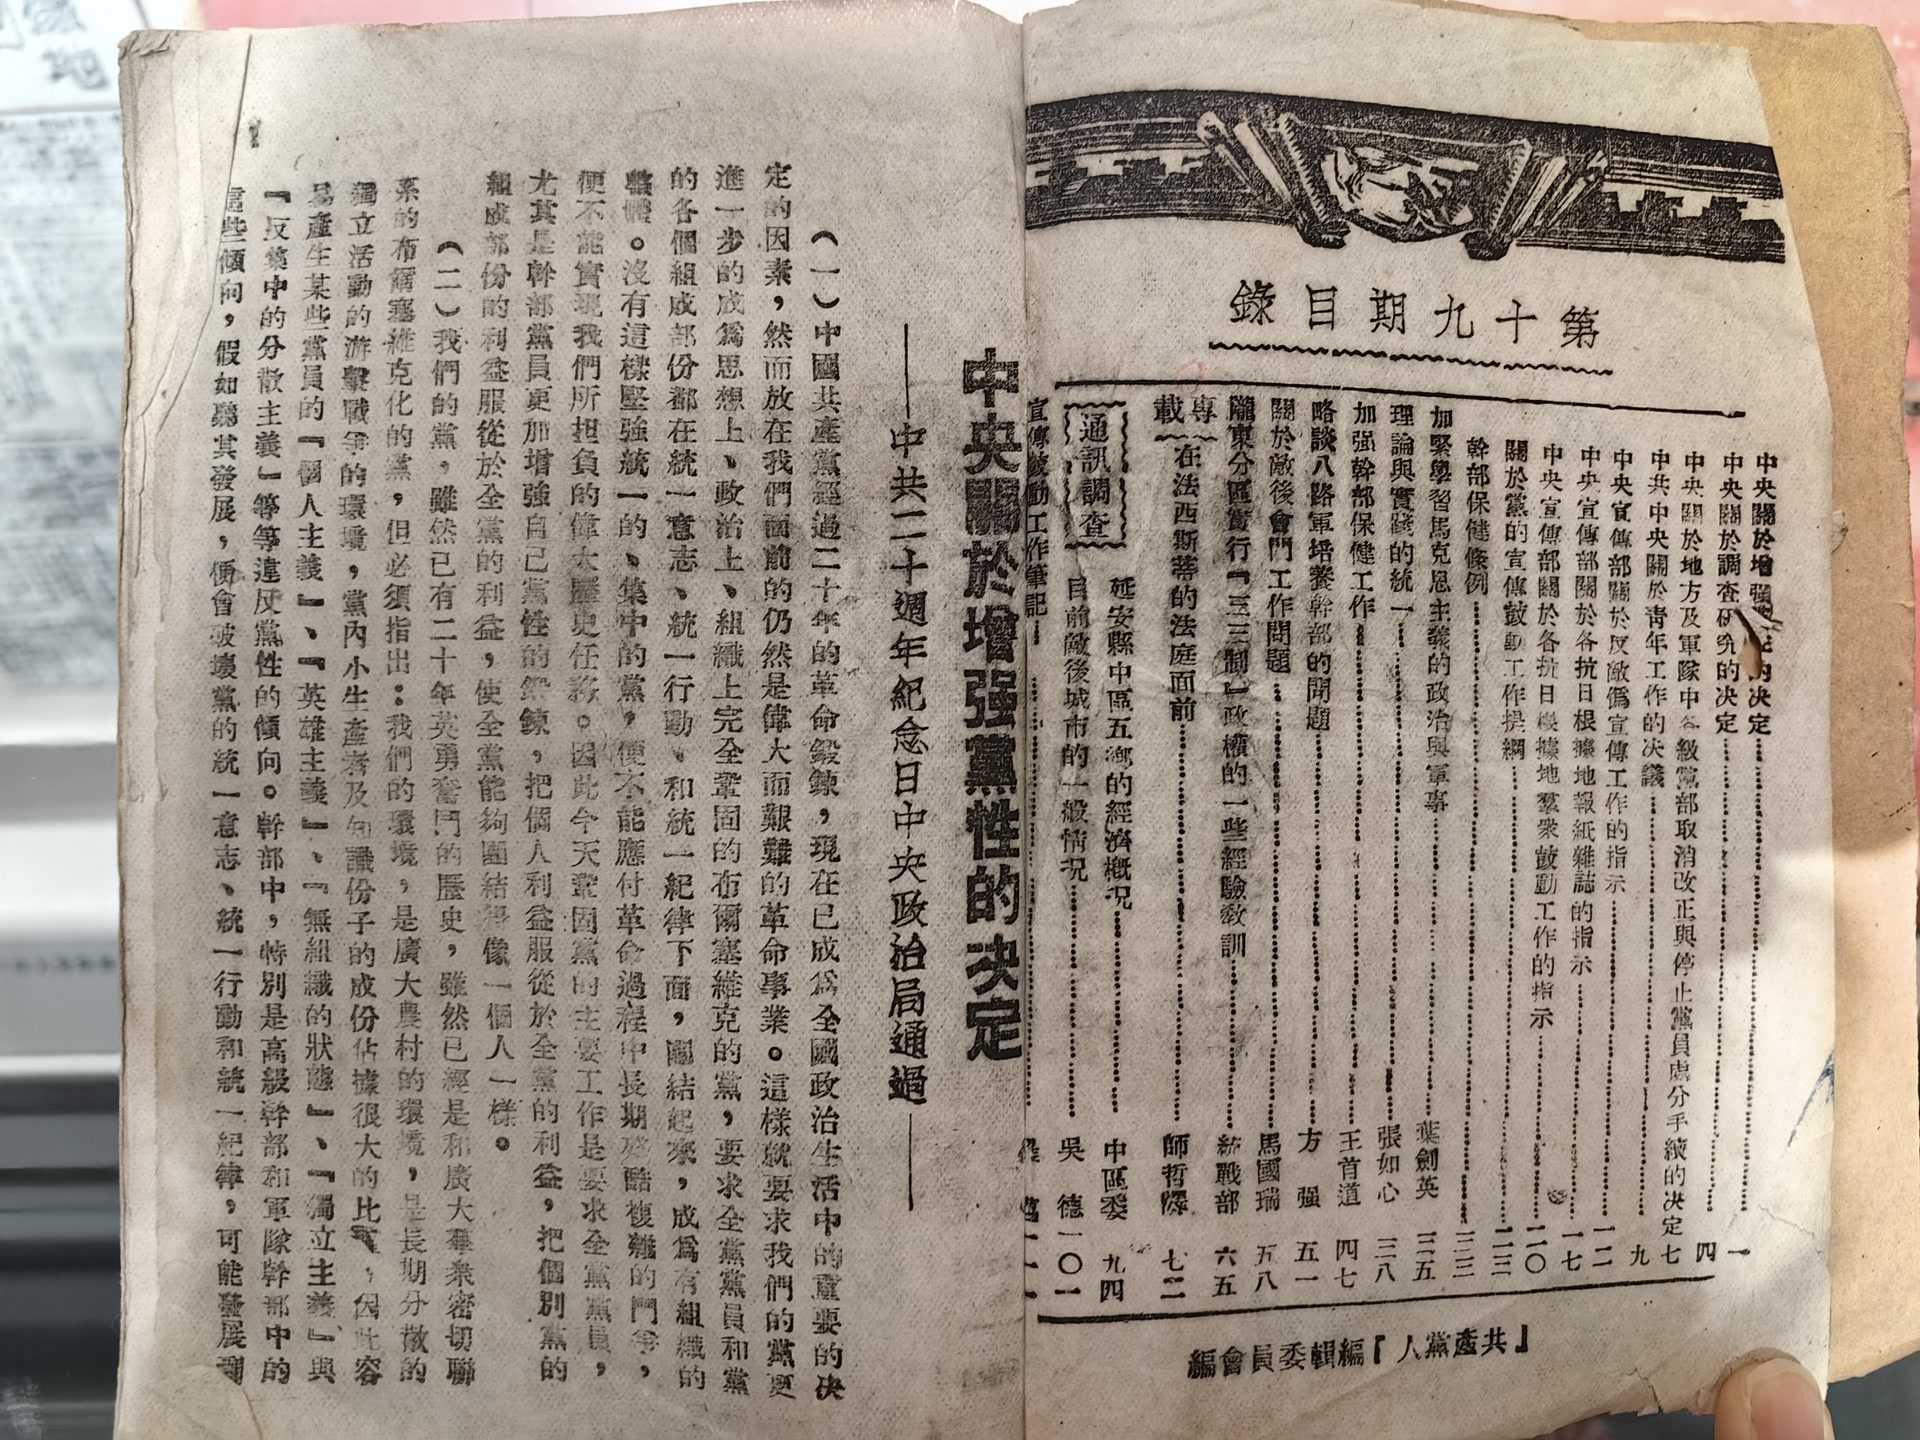 第十九期目錄
中央關於增强　　的決定　一
中央關於調查研究的決定　四
中央關於地方及軍隊中各級黨部取消改正與停止黨員處分手續的決定　七
中共中央關於青年工作的決議　九
中央宣傳部關於反敵偽宣傳工作的指示　一二
中央宣傳部關於各抗日根據地報紙雜誌的指示　一七
中央宣傳部關於各抗日根據地羣衆鼓動工作的指示　二〇
關於黨的宣傳鼓動工作提綱　二三
幹部保健條例　三三
加緊學習馬克思主義的政治與軍事　葉劍英　三五
理論與實踐的統一　張如心　三八
加强幹部保健工作　王首道　四七
略談八路軍培養幹部的問題　方　强　五一
關於敵後會門工作問題　馬國瑞　五八
隴東分區實行『三三制』政權的一些經驗教訓　統戰部　六五
專載
在法西斯蒂的法庭面前　師哲譯　七二
通訊調查
延安縣中區五鄉的經濟概况　中區委　九四
目前敵後城市的一般情况　吳　德　一〇一
宣傳鼓動工作筆記
『共產黨人』編輯委員會編
中央關於增强黨性的决定
——中共二十週年紀念日中央政治局通過——
（一）中國共產黨經過二十年的革命鍛鍊，現在已成爲全國政治生活中的重要的决
定的因素，然而放在我們面前的仍然是偉大而艱難的革命事業。這樣就要求我們的黨更
進一步的成爲思想上、政治上、組織上完全鞏固的布爾塞維克的黨，要求全黨黨員和黨
的各個組成部份都在統一意志、統一行動、和統一紀律下面，團結起來，成爲有組織的
整體。沒有這樣堅强統一的、集中的黨，便不能應付革命過程中長期殘酷複雜的鬥爭，
便不能實現我們所担負的偉大歷史任務。因此今天鞏固黨的主要工作是要求全黨黨員，
尤其是幹部黨員更加增強自己黨性的鍛鍊，把個人利益服從於全黨的利益，把個別黨的
組成部份的利益服從於全黨的利益，使全黨能夠團結得像一個人一樣。
（二）我們的黨，雖然已有二十年英勇奮鬥的歷史，雖然已經是和廣大羣衆密切聯
系的布爾塞維克化的黨，但必須指出：我們的環境，是廣大農村的環境，是長期分散的
獨立活動的游擊戰爭的環境，黨內小生產者及知識份子的成份佔據很大的比重，因此容
易產生某些黨員的『個人主義』、『英雄主義』、『無組織的狀態』、『獨立主義』與
『反集中的分散主義』等等違反黨性的傾向。幹部中，特別是高級幹部和軍隊幹部中的
這些傾向，假如聽其發展，便會破壞黨的統一意志、統一行動和統一紀律，可能發展到